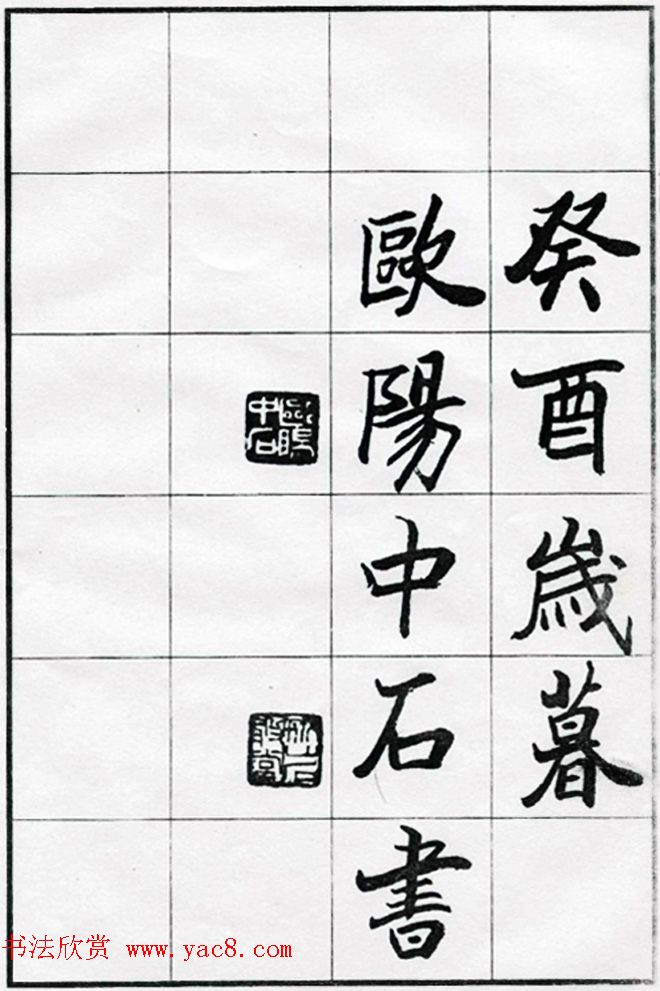 癸酉歲暮
歐陽中石書
歐陽中石
书法欣赏 www.yac8.com